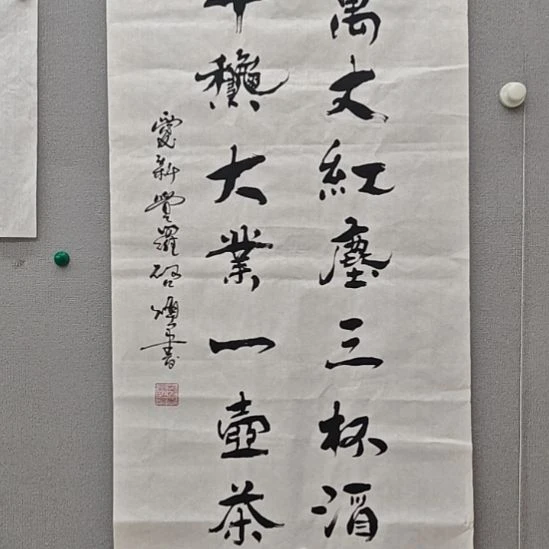 萬丈紅塵三杯酒
千龝大業一壺茶
愛新覺羅啓㷆書